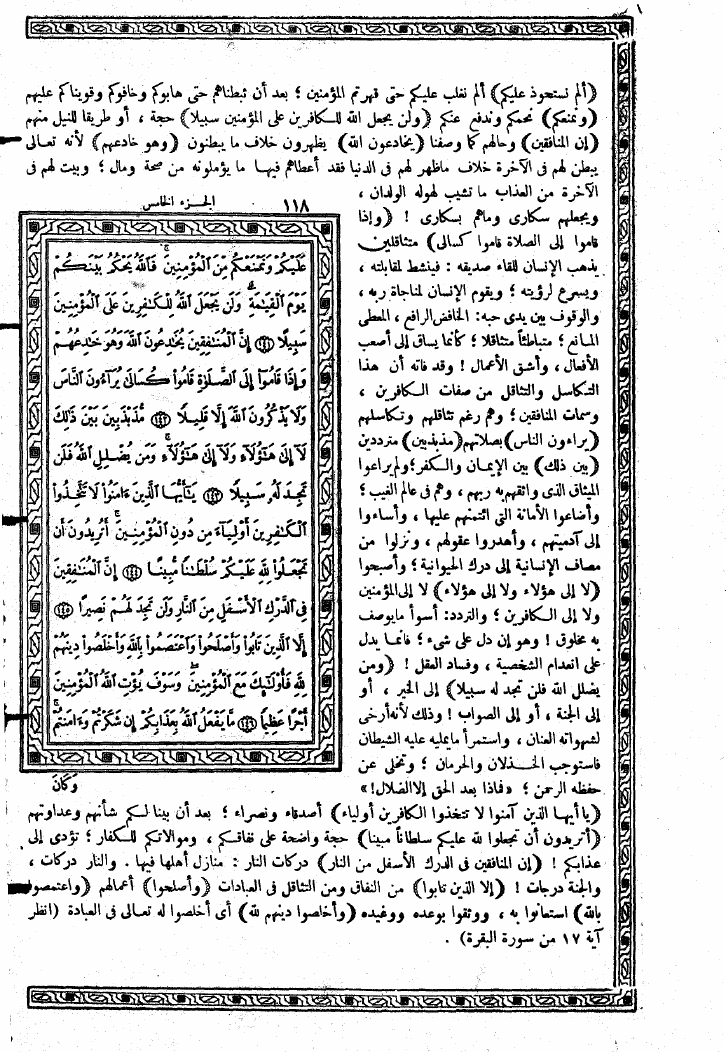 (ألم نستحوذ عليكم) ألم نغلب عليكم حتى قهرتم المؤمنين ؛ بعد أن ثبطناهم حتى هابوكم وخافوكم وقويناكم عليهم
(ونمنعكم) نحمكم وندفع عنكم (ولن يجعل الله للكافرين على المؤمنين سبيلا) حجة ، أو طريقا للنيل منهم
(إن المنافقين) وحالهم كما وصفنا (يخادعون الله) يظهرون خلاف ما يبطنون (وهو خادعهم) لأنه تعالى
يبطن لهم فى الآخرة خلاف ماظهر لهم فى الدنيا فقد أعطاهم فيها ما يؤملونه من صحة ومال ؛ وبيت لهم فى
الآخرة من العذاب ما تشيب لهوله الولدان ،
ويجعلهم سكارى وماهم بسكارى ! (وإذا
قاموا إلى الصلاة قاموا كسالى) متثاقلين
يذهب الإنسان للقاء صديقه : فينشط لمقابلته ،
ويسرع لرؤيته ؛ ويقوم الإنسان لمناجاة ربه ،
والوقوف بين يدى حبه: الخافض الرافع ، المعطى
المانع ؛ متباطئاً متثاقلا ؛ كأنما يساق إلى أصعب
الأفعال ، وأشق الأعمال ! وقد فاته أن هذا
التكاسل والتثاقل من صفات الكافرين ،
وسمات المنافقين ؛ وهم رغم تثاقلهم وتكاسلهم
(يراءون الناس) بصلاتهم (مذبذبين) مترددين
(بين ذلك) بين الإيمان والكفر؛ ولم يراعوا
الميثاق الذى واثقهم به ربهم ، وهم فى عالم الغيب ؛
وأضاعوا الأمانة التى ائتمنهم عليها ، وأساءوا
إلى آدميتهم ، وأهدروا عقولهم ، ونزلوا من
مصاف الإنسانية إلى درك الحيوانية ؛ وأصبحوا
(لا إلى هؤلاء ولا إلى هؤلاء) لا إلى المؤمنين
ولا إلى الكافرين ؛ والتردد: أسوأ مايوصف
به مخلوق ! وهو إن دل على شىء ؛ فإنما يدل
على انعدام الشخصية ، وفساد العقل ! (ومن
يضلل الله فلن تجد له سبيلا) إلى الخير ، أو
إلى الجنة ، أو إلى الصواب ! وذلك لأنه أرخى
لشهواته العنان ، واستمرأ مايمليه عليه الشيطان
فاستوجب الخذلان والحرمان ؛ وتخلى عن
حفظه الرحمن ؛ «فماذا بعد الحق إلا الضلال!»
١١٨ الجزء الخامس
عَلَيْكُمْ وَنَمْنَعْكُم مِّنَ ٱلْمُؤْمِنِينَ ۚ فَٱللَّهُ يَحْكُمُ بَيْنَكُمْ
يَوْمَ ٱلْقِيَٰمَةِ ۗ وَلَن يَجْعَلَ ٱللَّهُ لِلْكَٰفِرِينَ عَلَى ٱلْمُؤْمِنِينَ
سَبِيلًا ﴿١٤١﴾ إِنَّ ٱلْمُنَٰفِقِينَ يُخَٰدِعُونَ ٱللَّهَ وَهُوَ خَٰدِعُهُمْ
وَإِذَا قَامُوٓا۟ إِلَى ٱلصَّلَوٰةِ قَامُوا۟ كُسَالَىٰ يُرَآءُونَ ٱلنَّاسَ
وَلَا يَذْكُرُونَ ٱللَّهَ إِلَّا قَلِيلًا ﴿١٤٢﴾ مُّذَبْذَبِينَ بَيْنَ ذَٰلِكَ
لَآ إِلَىٰ هَٰٓؤُلَآءِ وَلَآ إِلَىٰ هَٰٓؤُلَآءِ ۚ وَمَن يُضْلِلِ ٱللَّهُ فَلَن
تَجِدَ لَهُۥ سَبِيلًا ﴿١٤٣﴾ يَٰٓأَيُّهَا ٱلَّذِينَ ءَامَنُوا۟ لَا تَتَّخِذُوا۟
ٱلْكَٰفِرِينَ أَوْلِيَآءَ مِن دُونِ ٱلْمُؤْمِنِينَ ۚ أَتُرِيدُونَ أَن
تَجْعَلُوا۟ لِلَّهِ عَلَيْكُمْ سُلْطَٰنًا مُّبِينًا ﴿١٤٤﴾ إِنَّ ٱلْمُنَٰفِقِينَ
فِى ٱلدَّرْكِ ٱلْأَسْفَلِ مِنَ ٱلنَّارِ وَلَن تَجِدَ لَهُمْ نَصِيرًا ﴿١٤٥﴾
إِلَّا ٱلَّذِينَ تَابُوا۟ وَأَصْلَحُوا۟ وَٱعْتَصَمُوا۟ بِٱللَّهِ وَأَخْلَصُوا۟ دِينَهُمْ
لِلَّهِ فَأُو۟لَٰٓئِكَ مَعَ ٱلْمُؤْمِنِينَ ۖ وَسَوْفَ يُؤْتِ ٱللَّهُ ٱلْمُؤْمِنِينَ
أَجْرًا عَظِيمًا ﴿١٤٦﴾ مَّا يَفْعَلُ ٱللَّهُ بِعَذَابِكُمْ إِن شَكَرْتُمْ وَءَامَنتُمْ ۚ
وَكَانَ
(يا أيها الذين آمنوا لا تتخذوا الكافرين أولياء) أصدقاء ونصراء ؛ بعد أن بينا لكم شأنهم وعداوتهم
(أتريدون أن تجعلوا لله عليكم سلطاناً مبينا) حجة واضحة على نفاقكم ، وموالاتكم للكفار ؛ تؤدى إلى
عذابكم ! (إن المنافقين فى الدرك الأسفل من النار) دركات النار : منازل أهلها فيها . والنار دركات ،
والجنة درجات ! (إلا الذين تابوا) من النفاق ومن التثاقل فى العبادات (وأصلحوا) أعمالهم (واعتصموا
بالله) استعانوا به ، ووثقوا بوعده ووعيده (وأخلصوا دينهم لله) أى أخلصوا له تعالى فى العبادة (انظر
آية ١٧ من سورة البقرة) .